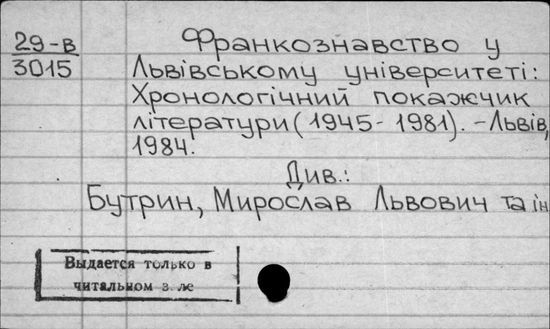 29-в
3015
Франкознавство у
Львівському університеті:
Хронологічний покажчик
літератури (1945-1981). - Львів,
1984.
Див.:
Бутрин, Мирослав Львович та ін
Выдается только в
читальном з ле